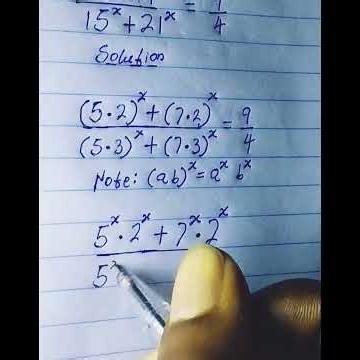 15ˣ + 21ˣ = 4
Solution
(5·2)ˣ + (7·2)ˣ = 9
(5·3)ˣ + (7·3)ˣ 4
Note: (ab)ˣ = aˣ bˣ
5ˣ·2ˣ + 7ˣ·2ˣ
5ˣ